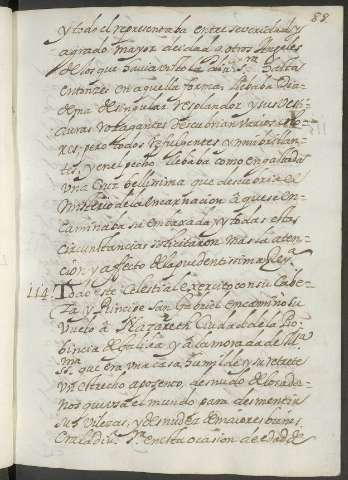 88
y todo el representaba entre severidad, y
agrado mayor deidad q. otros Angeles
de los que havia visto la divi.ª S.ra hasta
entonces en aquella forma, llebaba Dia=
dema de singular resplandor y sus vesti=
duras rozagantes descubrian varios colo=
res; pero todos refulgentes y mui brillan=
tes, y en el pecho llebaba como engastada
una Cruz bellisima que descubria el
misterio de la Encarnacion a que se en=
caminaba su embaxada, y todas estas
circunstancias solicitaron mas la aten=
ción y affecto de la prudentissima Rey.ª
114. Todo este Celestial exercito con su Cabe=
za, y Principe San Gabriel encamino su
vuelo à Nazareth Ciudad de la Pro=
bincia de Galilea y à la morada de M.ª
SS.ma que era una casa humilde y su retrete
un estrecho aposento, desnudo de los ador=
nos que usa el mundo para desmentir
sus vilezas, y desnudez de maiores bienes.
Era la div.ª S.ra en esta ocasion de edad de